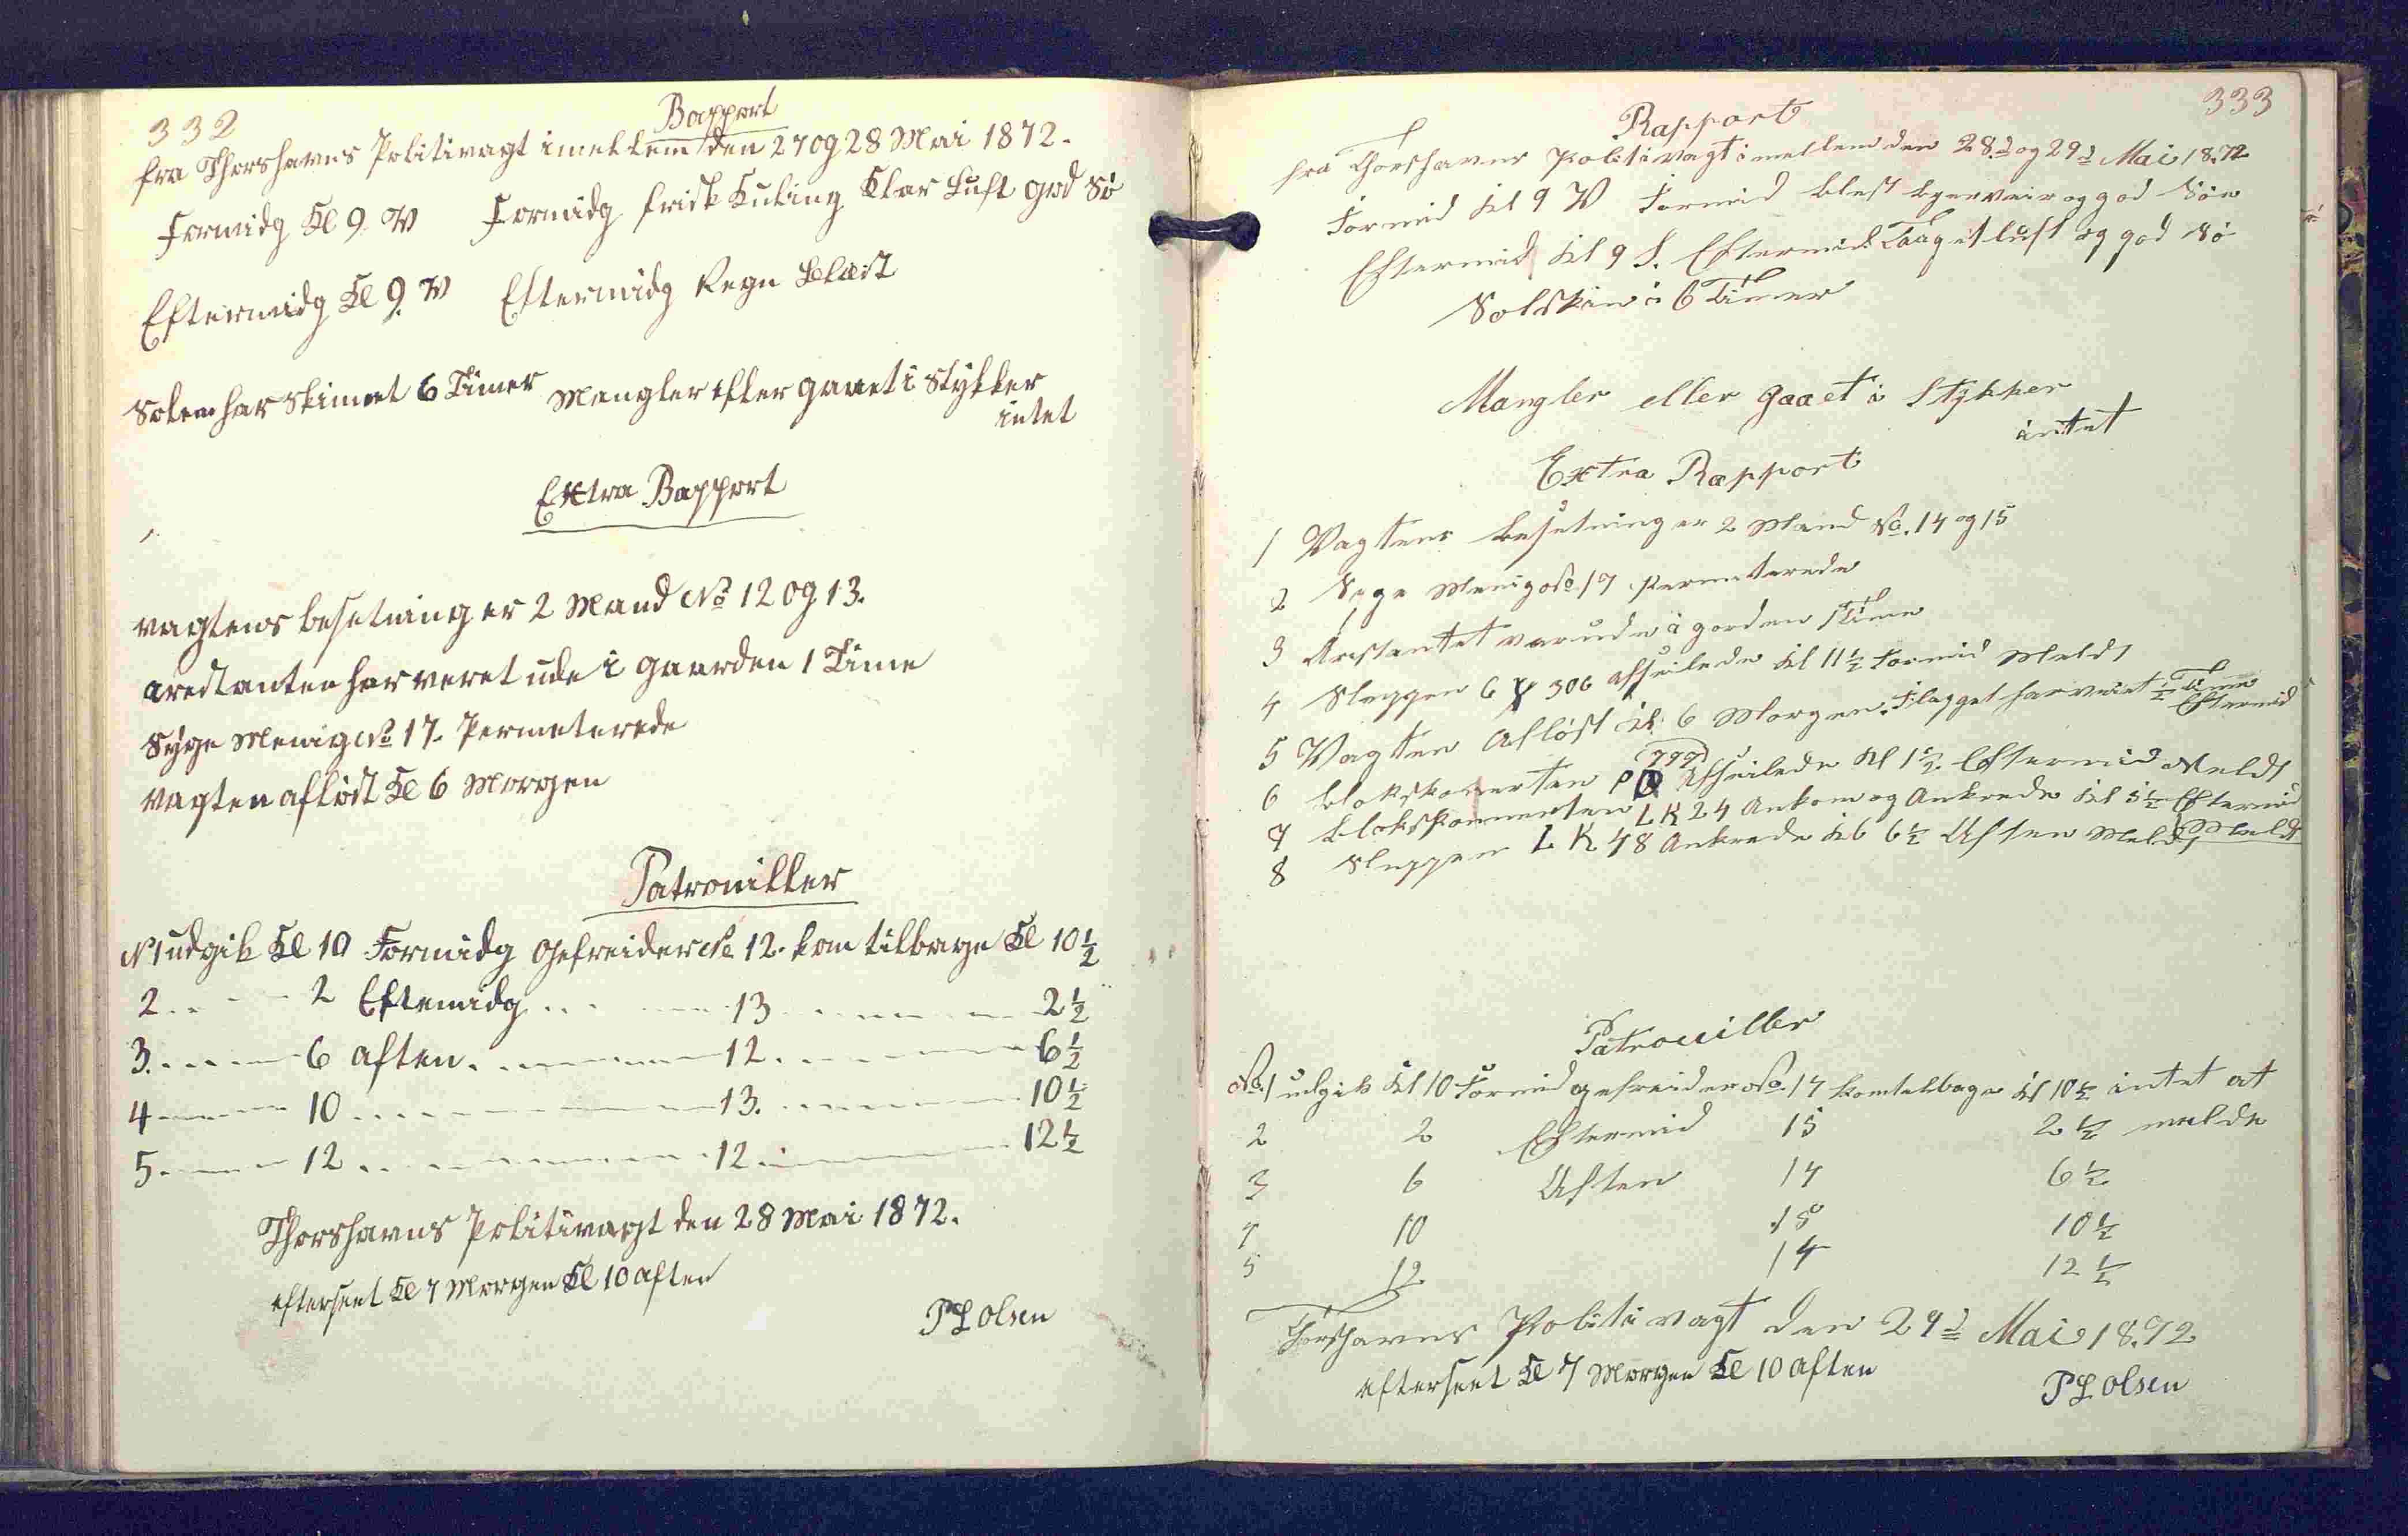 332
Rapport
fra Thorshavns Politivagt imellem den 27 og 28 Mai 1872.
Formidg Kl 9. V Formidg frisk Kuling Klar Luft god Sø
Eftermidg Kl 9. V Eftermidg Regn Blæst
Solen har Skinnet 6 Timer Mangler eller gaaet i Stykker
intet
Extra Rapport
vagtens besetning er 2 Mand No 12 og 13.
arestanten har veret ude i gaarden 1 Time
Syge Menig No 17. Permeterede
vagten afløst Kl 6 Morgen
Patrouiller
N 1 udgik Kl 10 Formidg Gefreider No 12. kom tilbage Kl 10 1/2
2 2 Eftemidg 13 2 1/2
3. 6 aften. 12. 6 1/2
4 10 13. 10 1/2
5 12 12 12 1/2
Thorshavns Politivagt den 28 Mai 1872.
efterseet Kl 7 Morgen Kl 10 aften
PL Olsen
333
Rapport
fra Thorshavns Politivagt imellem den 28d og 29d Mai 1872
Formid Kl 9 V Formid blest og god Søe
Eftermid Kl 9 S. Eftermid Taaget luft og god Sø
Solskin i 6 Timer
Mangler eller gaaet i Stykker
intet
Extra Rapport
1 Vagtens besetning er 2 Mand No. 14 og 15
2 Syge Menig No 17 Permeterede
3 Arestantet var ude i gorden 1 Time
4 Sluppen 6 306 afseilede Kl 11 1/2 Formid Meldt
5 Vagten Afløst Kl 6 Morgen. Flagget har veiet 1/2 Time
Eftermid
6 Afseilede Kl 1 1/2 Eftermid Meldt
7 LK 24 Ankom og Ankrede Kl 5 1/2 Eftermid
Meldt
8 Sluppen LK 48 Ankrede Kl 6 1/2 Aften Meldt
Patrouiller
No. 1 udgik Kl 10 Formid gefreider No 14 kom telbage Kl 10 1/2 intet at
2 2 Eftermid 15 2 1/2 melde
3 6 Aften 14 6 1/2
4 10 15 10 1/2
5 12 14 12 1/2
Thorshavns Politivagt den 29d Mai 1872
efterseet Kl 7 Morgen Kl 10 aften
PL Olsen